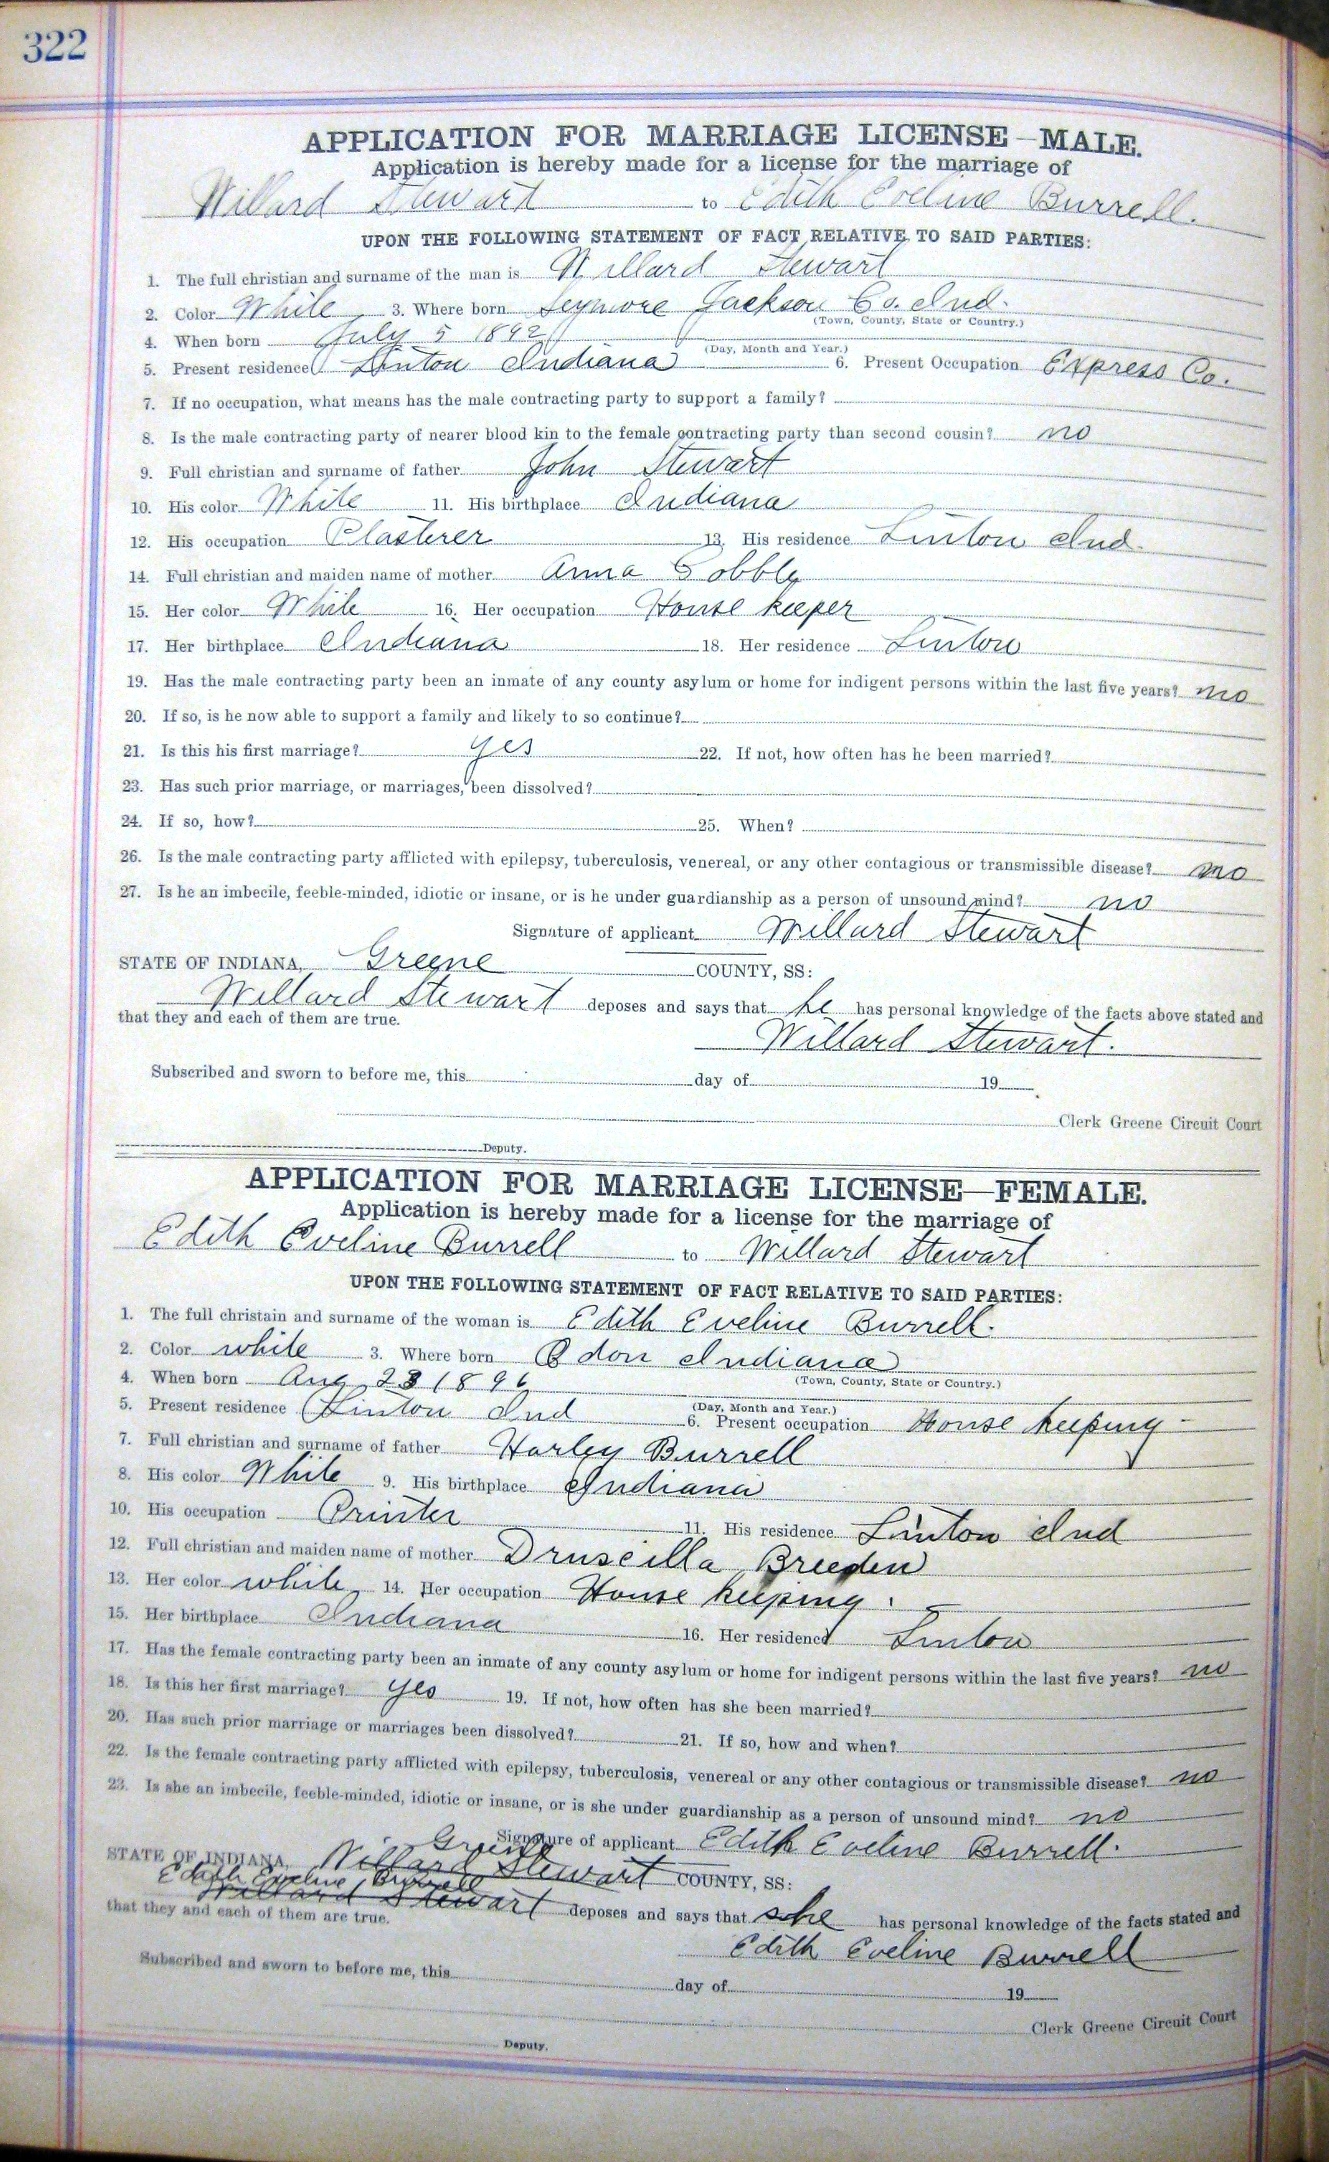 322
APPLICATION FOR MARRIAGE LICENSE—MALE.
Application is hereby made for a license for the marriage of
Willard Stewart to Edith Eveline Burrell.
UPON THE FOLLOWING STATEMENT OF FACT RELATIVE TO SAID PARTIES:
1. The full christian and surname of the man is Willard Stewart
2. Color White 3. Where born Seymore Jackson Co. Ind.
(Town, County, State or Country.)
4. When born July 5 1892
(Day, Month and Year.)
5. Present residence Linton Indiana 6. Present Occupation Express Co.
7. If no occupation, what means has the male contracting party to support a family?
8. Is the male contracting party of nearer blood kin to the female contracting party than second cousin? no
9. Full christian and surname of father John Stewart
10. His color White 11. His birthplace Indiana
12. His occupation Plasterer 13. His residence Linton Ind.
14. Full christian and maiden name of mother Anna Gobble
15. Her color White 16. Her occupation House keeper
17. Her birthplace Indiana 18. Her residence Linton
19. Has the male contracting party been an inmate of any county asylum or home for indigent persons within the last five years? no
20. If so, is he now able to support a family and likely to so continue?
21. Is this his first marriage? yes 22. If not, how often has he been married?
23. Has such prior marriage, or marriages, been dissolved?
24. If so, how? 25. When?
26. Is the male contracting party afflicted with epilepsy, tuberculosis, venereal, or any other contagious or transmissible disease? no
27. Is he an imbecile, feeble-minded, idiotic or insane, or is he under guardianship as a person of unsound mind? no
Signature of applicant Willard Stewart
STATE OF INDIANA, Greene COUNTY, SS:
Willard Stewart deposes and says that he has personal knowledge of the facts above stated and
that they and each of them are true.
Willard Stewart.
Subscribed and sworn to before me, this day of 19
Clerk Greene Circuit Court
Deputy.
APPLICATION FOR MARRIAGE LICENSE—FEMALE.
Application is hereby made for a license for the marriage of
Edith Eveline Burrell to Willard Stewart
UPON THE FOLLOWING STATEMENT OF FACT RELATIVE TO SAID PARTIES:
1. The full christain and surname of the woman is Edith Eveline Burrell.
2. Color white 3. Where born Odon Indiana
(Town, County, State or Country.)
4. When born Aug 23 1896
(Day, Month and Year.)
5. Present residence Linton Ind 6. Present occupation House keeping
7. Full christian and surname of father Harley Burrell
8. His color White 9. His birthplace Indiana
10. His occupation Printer 11. His residence Linton Ind
12. Full christian and maiden name of mother Druscilla Breeden
13. Her color white 14. Her occupation House keeping.
15. Her birthplace Indiana 16. Her residence Linton
17. Has the female contracting party been an inmate of any county asylum or home for indigent persons within the last five years? no
18. Is this her first marriage? yes 19. If not, how often has she been married?
20. Has such prior marriage or marriages been dissolved? 21. If so, how and when?
22. Is the female contracting party afflicted with epilepsy, tuberculosis, venereal or any other contagious or transmissible disease? no
23. Is she an imbecile, feeble-minded, idiotic or insane, or is she under guardianship as a person of unsound mind? no
Signature of applicant Edith Eveline Burrell.
Greene
STATE OF INDIANA, Willard Stewart COUNTY, SS:
Edith Eveline Burrell
Willard Stewart deposes and says that she has personal knowledge of the facts stated and
that they and each of them are true.
Edith Eveline Burrell
Subscribed and sworn to before me, this day of 19
Clerk Greene Circuit Court
Deputy.